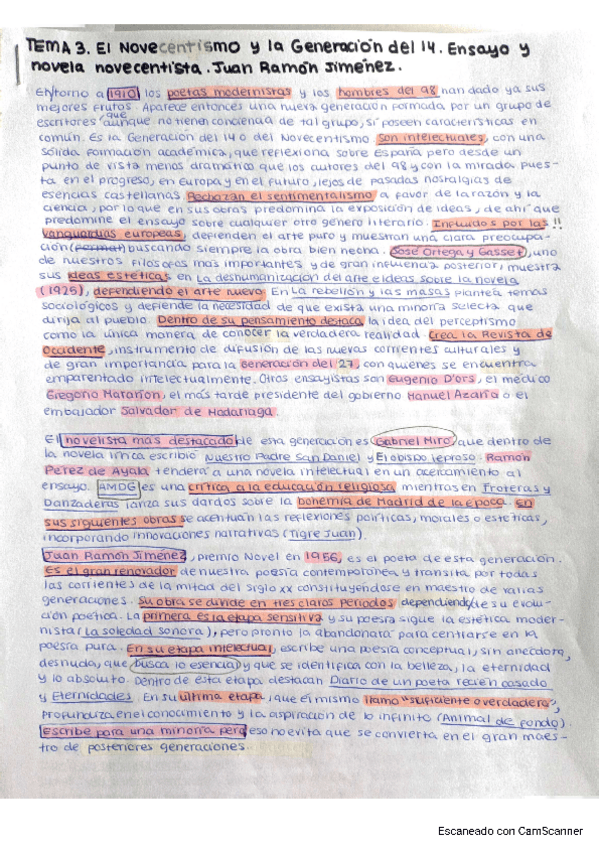 TEMA 3. El Novecentismo y la Generación del 14. Ensayo y
novela novecentista. Juan Ramón Jiménez.
En torno a 1910 los poetas modernistas y los hombres del 98 han dado ya sus
mejores frutos. Aparece entonces una nueva generación formada por un grupo de
escritores que aunque no tienen conciencia de tal grupo, sí poseen características en
común. Es la Generación del 14 o del Novecentismo. Son intelectuales, con una
sólida formación académica, que reflexiona sobre España pero desde un
punto de vista menos dramático que los autores del 98 y con la mirada pues-
ta en el progreso, en Europa y en el futuro, lejos de pasadas nostalgias de
esencias castellanas. Rechazan el sentimentalismo a favor de la razón y la
ciencia, por lo que en sus obras predomina la exposición de ideas, de ahí que
predomine el ensayo sobre cualquier otro género literario. Influidos por las !!
vanguardias europeas, defienden el arte puro y muestran una clara preocupa-
ción (formal) buscando siempre la obra bien hecha. José Ortega y Gasset, uno
de nuestros filósofos más importantes y de gran influencia posterior, muestra
sus ideas estéticas en La deshumanización del arte e ideas sobre la novela
(1925), dependiendo el arte nuevo. En La rebelión y las masas plantea temas
sociológicos y defiende la necesidad de que exista una minoría selecta que
dirija al pueblo. Dentro de su pensamiento destaca la idea del perceptismo
como la única manera de conocer la verdadera realidad. Crea la Revista de
Occidente, instrumento de difusión de las nuevas corrientes culturales y
de gran importancia para la Generación del 27, con quienes se encuentra
emparentado intelectualmente. Otros ensayistas son Eugenio D'ors, el médico
Gregorio Marañón, el más tarde presidente del gobierno Manuel Azaña o el
embajador Salvador de Madariaga.
El novelista más destacado de esta generación es Gabriel Miró, que dentro de
la novela lírica escribió Nuestro Padre San Daniel y El obispo leproso. Ramón
Pérez de Ayala tenderá a una novela intelectual en un acercamiento al
ensayo. AMDG es una crítica a la educación religiosa mientras en Troteras y
Danzaderas lanza sus dardos sobre la bohemia de Madrid de la época. En
sus siguientes obras se acentúan las reflexiones políticas, morales o estéticas,
incorporando innovaciones narrativas (Tigre Juan).
Juan Ramón Jiménez, premio Novel en 1956, es el poeta de esta generación.
Es el gran renovador de nuestra poesía contemporánea y transita por todas
las corrientes de la mitad del siglo XX constituyéndose en maestro de varias
generaciones. Su obra se divide en tres claros períodos dependiendo de su evolu-
ción poética. La primera es la etapa sensitiva y su poesía sigue la estética moder-
nista (La soledad sonora), pero pronto la abandonará para centrarse en la
poesía pura. En su etapa intelectual, escribe una poesía conceptual, sin anécdota,
desnuda, que busca lo esencial y que se identifica con la belleza, la eternidad
y lo absoluto. Dentro de esta etapa destacan Diario de un poeta recién casado
y Eternidades. En su última etapa, que él mismo llamó "suficiente o verdadera",
profundiza en el conocimiento y la aspiración de lo infinito (Animal de fondo).
Escribe para una minoría pero eso no evita que se convierta en el gran maes-
tro de posteriores generaciones.
Escaneado con CamScanner